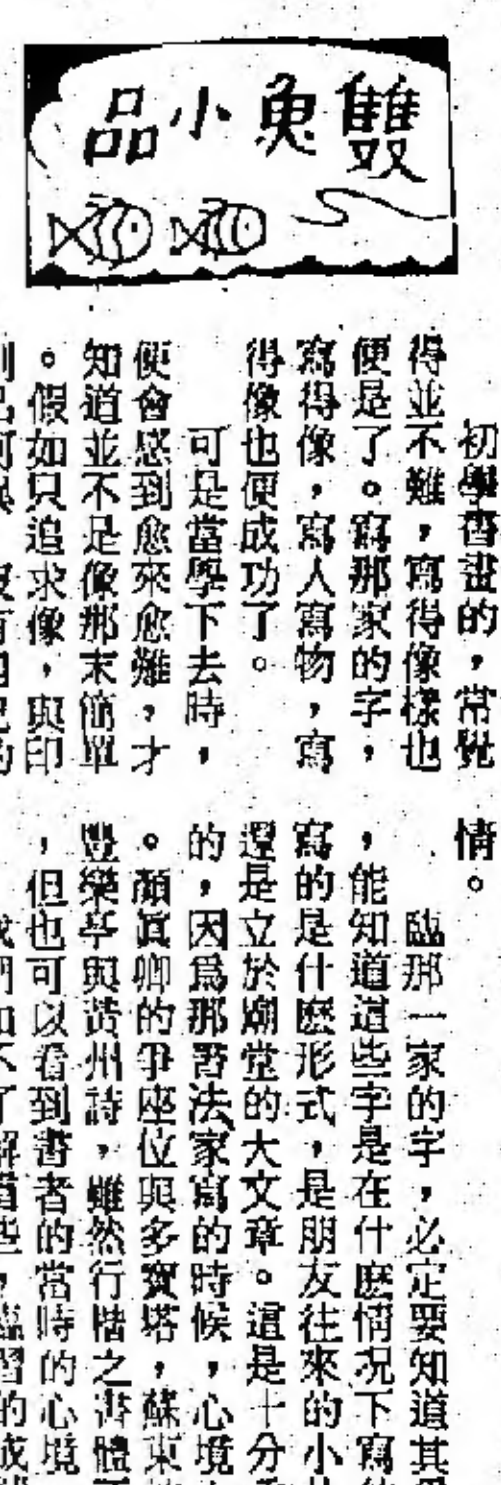 雙魚小品
初學書畫的，常覺
得並不難，寫得像樣也
便是了。寫那家的字，
寫得像，寫人寫物，寫
得像也便成功了。
可是當學下去時，
便會感到愈來愈難，才
知道並不是像那末簡單
。假如只追求像，與印
情。
臨那一家的字，必定要知道其
，能知道這些字是在什麼情況下寫
寫的是什麼形式，是朋友往來的小
還是立於廟堂的大文章。這是十分
的，因爲那書法家寫的時候，心境
。顏眞卿的爭座位與多寶塔，蘇東
豐樂亭與黃州詩，雖然行楷之書體
，但也可以看到書者的當時的心境